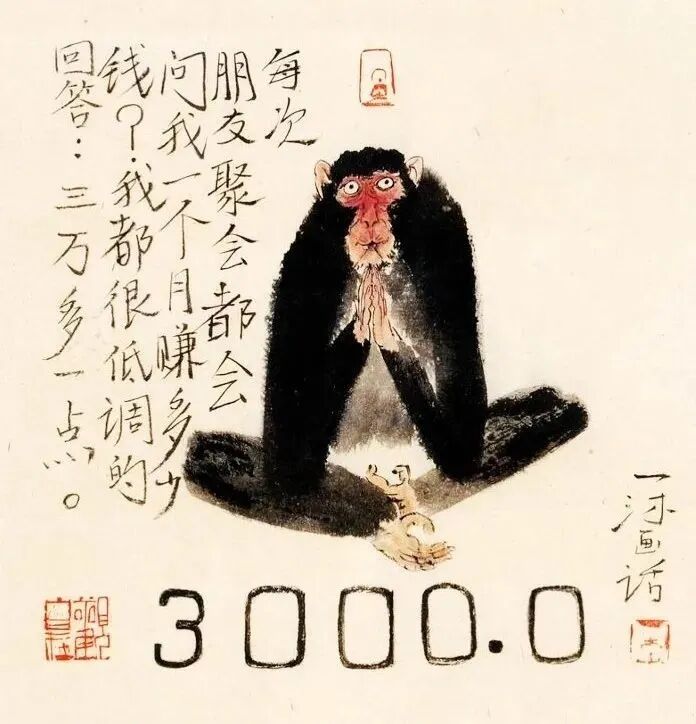 每次
朋友聚会都会
问我一个月赚多少
钱？我都很低调的
回答：三万多一点。
3000.0
一沐画话